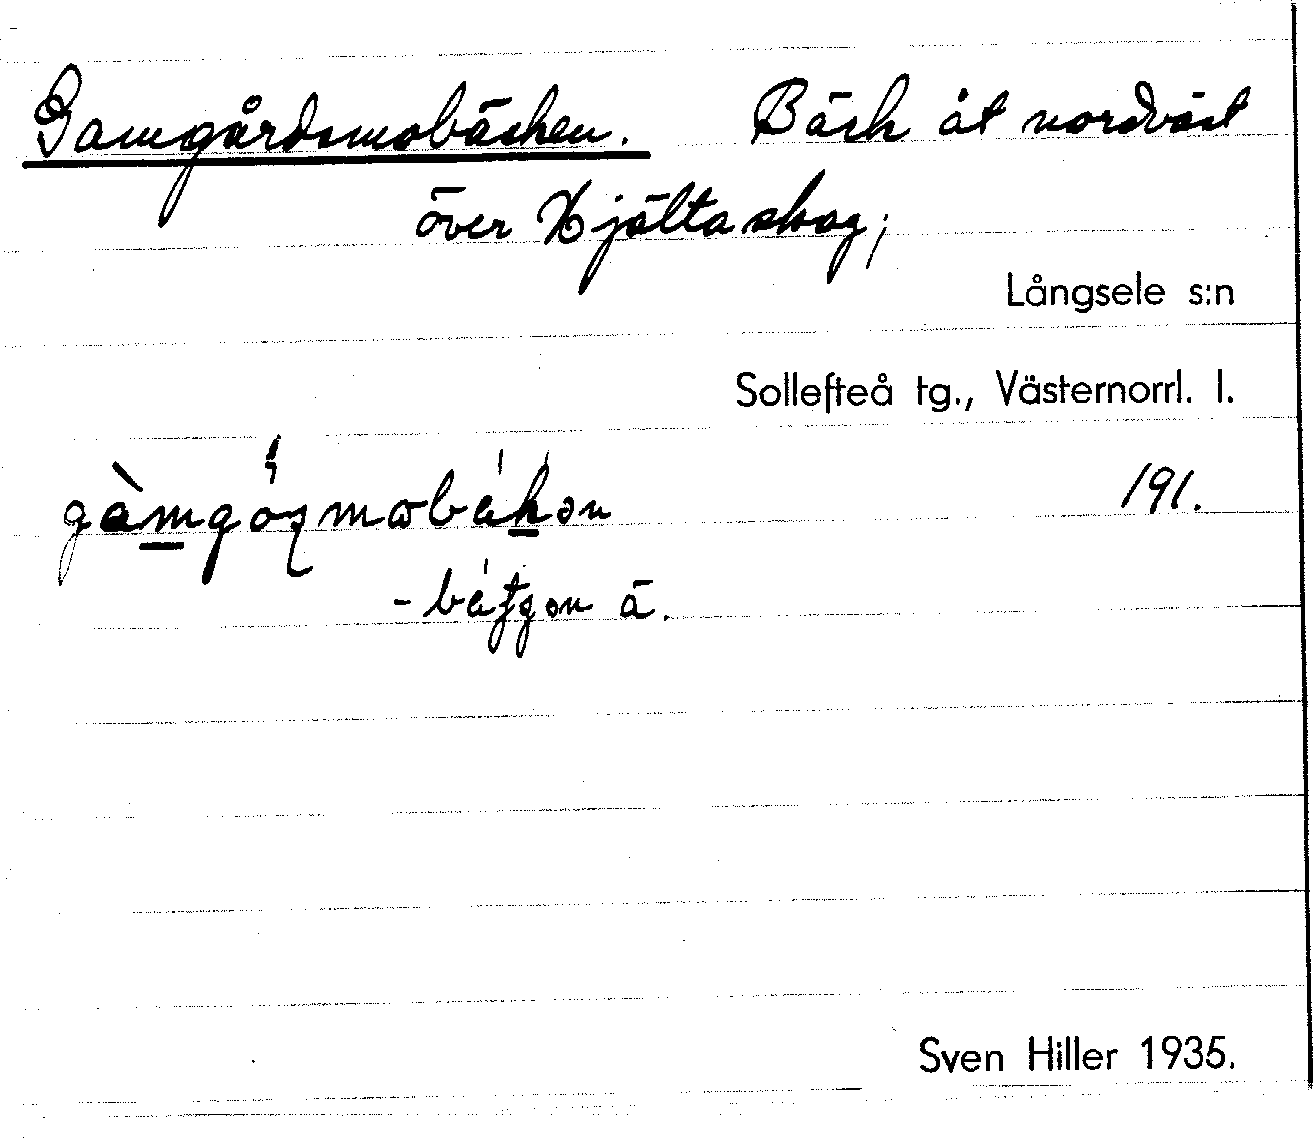 Gamgårdsmobäcken. Bäck åt nordväst
över Hjälta skog;
Långsele s:n
Sollefteå tg., Västernorrl. l.
191.
ä.
Sven Hiller 1935.